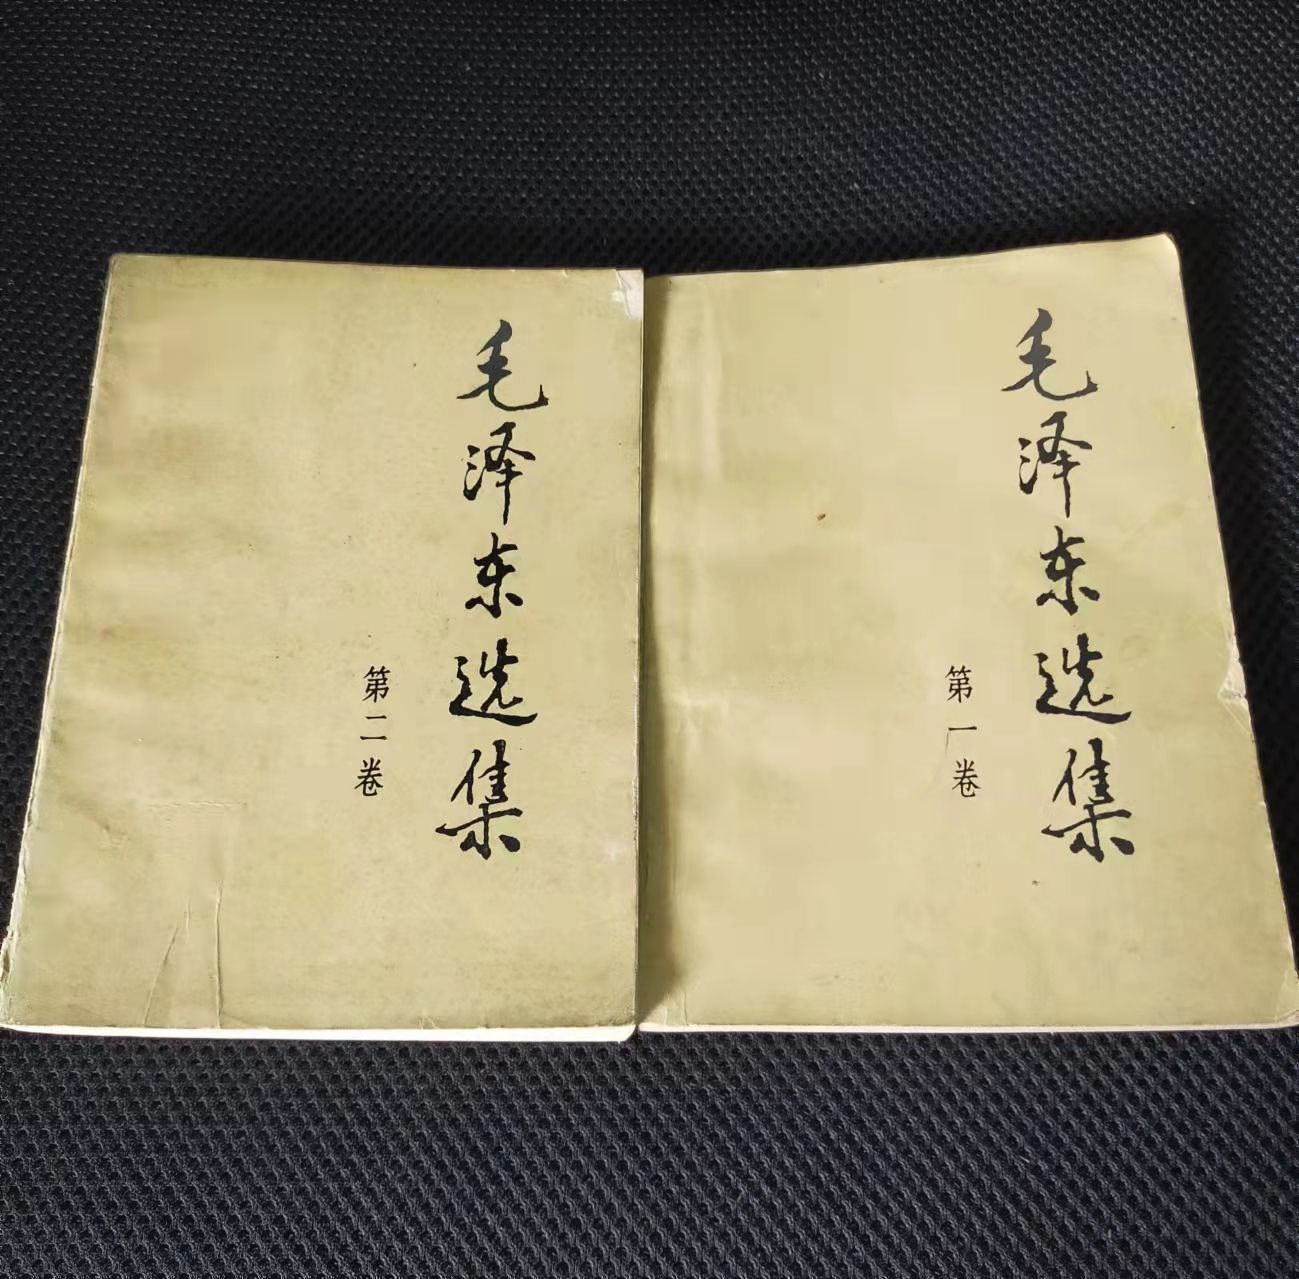 毛泽东选集
第二卷
毛泽东选集
第一卷